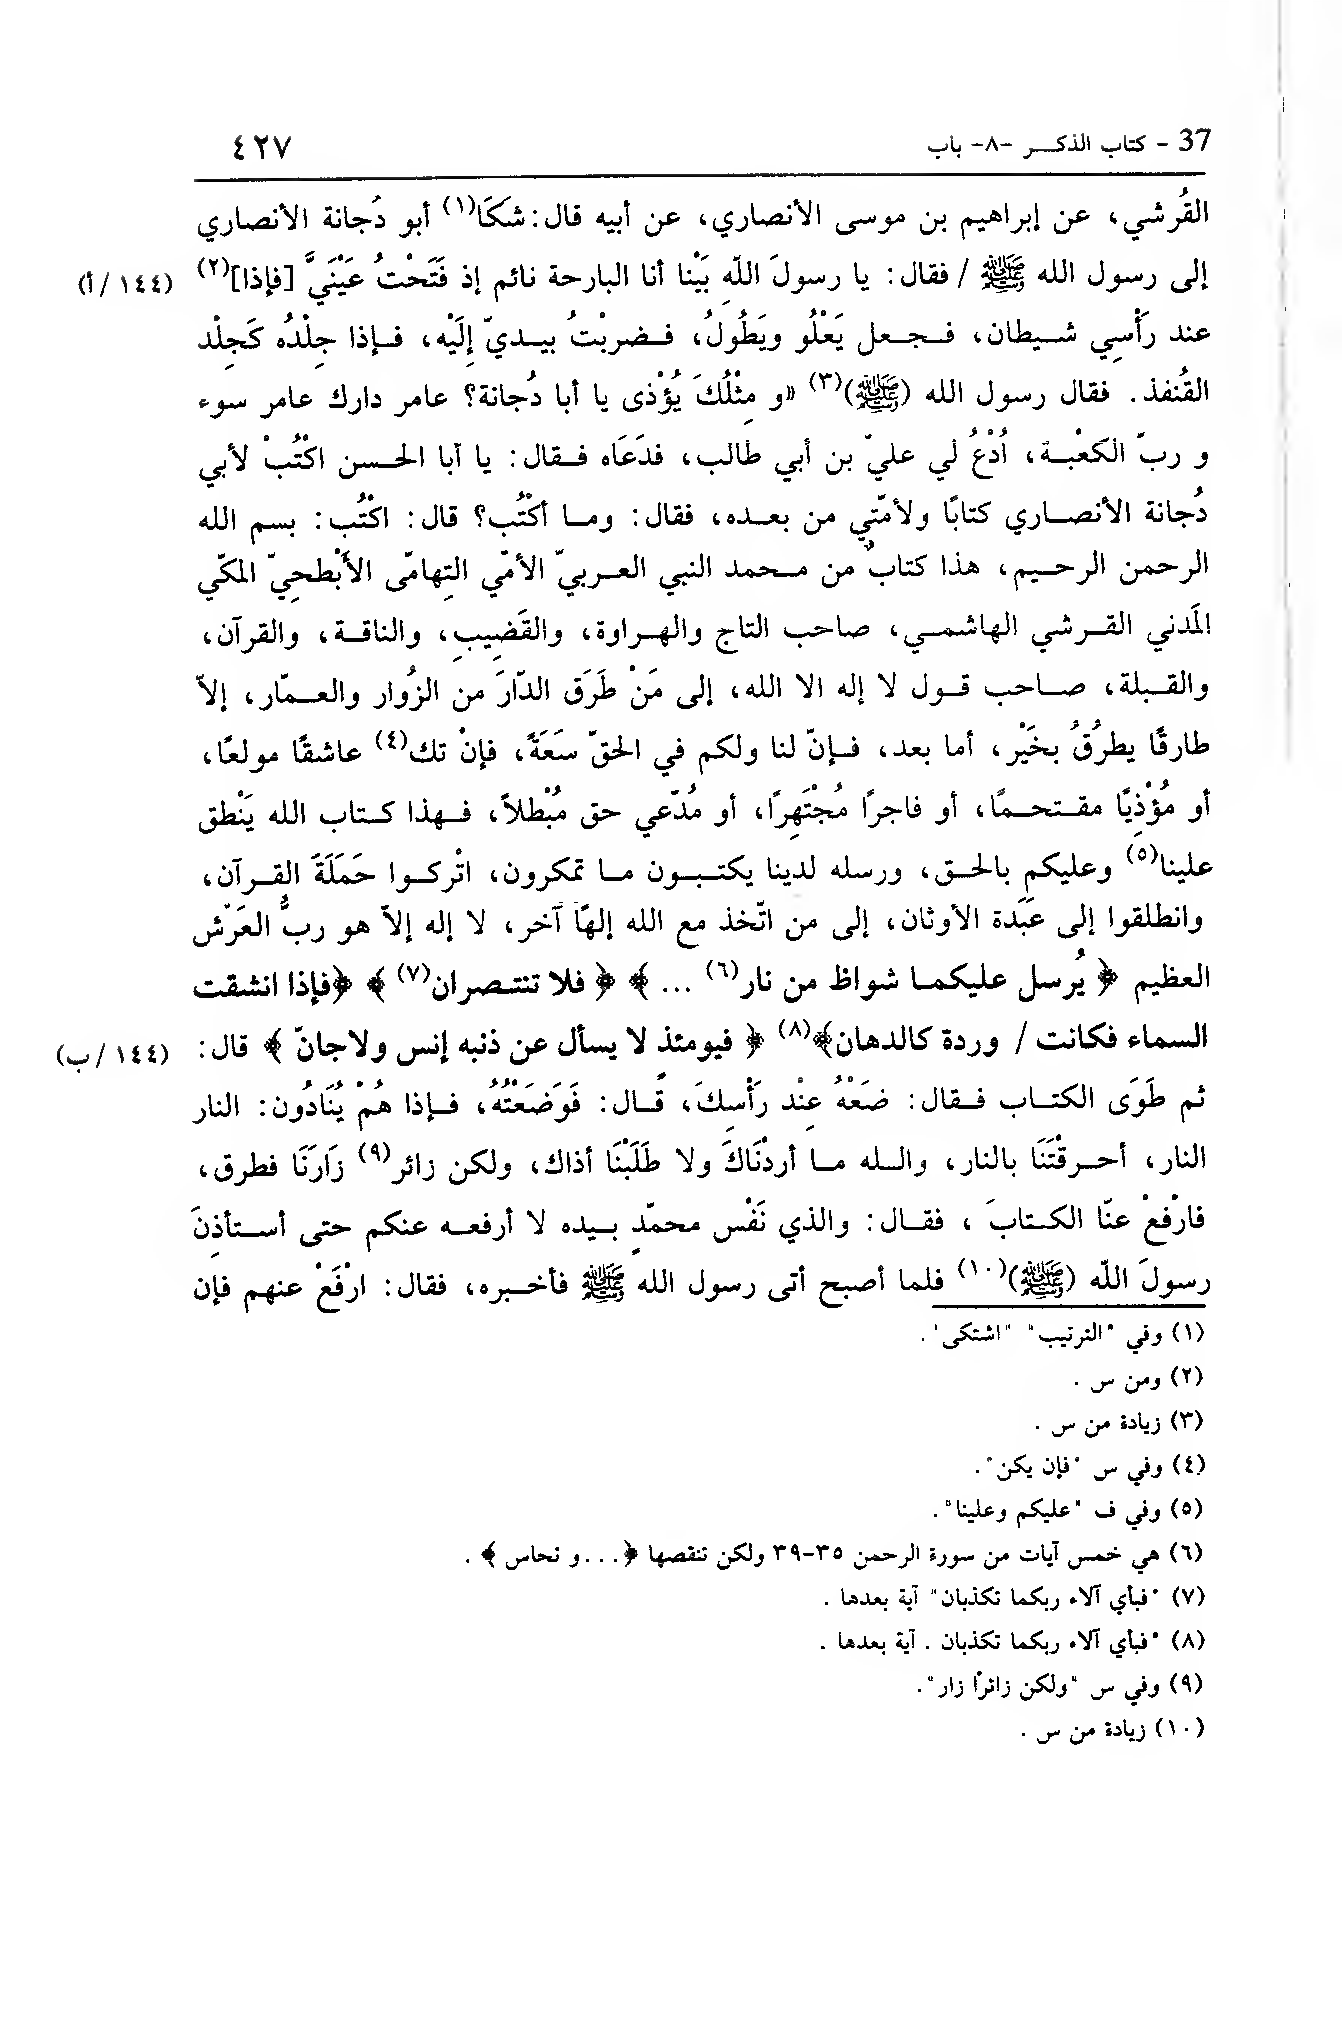 37 - كتاب الذكـــر -٨- باب ٤٢٧
القُرشي، عن إبراهيم بن موسى الأنصاري، عن أبيه قال: شكَا(١) أبو دُجانة الأنصاري
إلى رسول الله ﷺ / فقال: يا رسولَ اللّه بَيْنا أنا البارحة نائم إذ فَتَحْتُ عَيْنَيَّ [فإذا](٢) (١٤٤/ أ)
عند رَأْسِي شيطان، فجعل يَعْلُو ويَطُولُ، فضربْتُ بيديّ إِلَيْه، فإذا جِلْدُه كَجِلْد
القُنفذ. فقال رسول الله (ﷺ)(٣) «و مِثْلُكَ يُؤْذى يا أبا دُجانة؟ عامر دارك عامر سوء
و ربّ الكعْبة، اُدْعُ لي عليّ بن أبي طالب، فدَعَاه فقال: يا أبا الحسن اكْتُبْ لأبي
دُجانة الأنصاري كتابًا ولأمّتي من بعده، فقال: وما أكْتُب؟ قال: اكْتُب: بسم الله
الرحمن الرحيم، هذا كتابٌ من محمد النبي العربيّ الأمّي التِهامّى الأَبْطحيّ المكّي
المَدني القرشي الهاشمي، صاحب التاج والهراوة، والقَضِيب، والناقة، والقرآن،
والقبلة، صاحب قول لا إله الا الله، إلى مَنْ طَرَق الدّارَ من الزُوار والعمّار، إلاّ
طارقًا يطرُقُ بخَيْر، أما بعد، فإنّ لنا ولكم في الحقّ سَعَةً، فإنْ تك(٤) عاشقًا مولعًا،
أو مُؤْذِيًا مقتحمًا، أو فاجرًا مُجْتَهِرًا، أو مُدّعي حق مُبْطلاً، فهذا كتاب الله يَنْطق
علينا(٥) وعليكم بالحق، ورسله لدينا يكتبون ما تمكرون، اتْركوا حَمَلَةَ القرآن،
وانطلقوا إلى عبَدة الأوثان، إلى من اتّخذ مع الله إلهًا آخر، لا إله إلاّ هو ربُّ العَرْش
العظيم ﴿ يُرسل عليكما شواظ من نار(٦) ... ﴾ ﴿ فلا تنتصران(٧) ﴾ ﴿فإذا انشقت
السماء فكانت / وردة كالدهان﴾(٨) ﴿ فيومئذ لا يسأل عن ذنبه إنس ولاجانّ ﴾ قال: (١٤٤/ ب)
ثم طَوَى الكتاب فقال: ضَعْهُ عِنْد رَأْسِكَ، قَال: فَوَضَعْتُهُ، فإذا هُمْ يُنَادُون: النار
النار، أحرقْتَنَا بالنار، والله ما أردْنَاكَ ولا طَلَبْنَا أذاك، ولكن زائر(٩) زَارَنَا فطرق،
فارْفعْ عنّا الكتابَ ، فقال: والذي نَفْس محمّدٍ بيده لا أرفعه عنكم حتى أستأذِنَ
رسولَ اللّه (ﷺ)(١٠) فلما أصبح أتى رسول الله ﷺ فأخبره، فقال: ارْفَعْ عنهم فإن
(١) وفي "الترتيب" "اشتكى".
(٢) ومن س .
(٣) زيادة من س .
(٤) وفي س "فإن يكن".
(٥) وفي ف "عليكم وعلينا".
(٦) هي خمس آيات من سورة الرحمن ٣٥-٣٩ ولكن تنقصها ﴿...و نحاس ﴾ .
(٧) "فبأي آلاء ربكما تكذبان" آية بعدها .
(٨) "فبأي آلاء ربكما تكذبان . آية بعدها .
(٩) وفي س "ولكن زائرًا زار".
(١٠) زيادة من س .